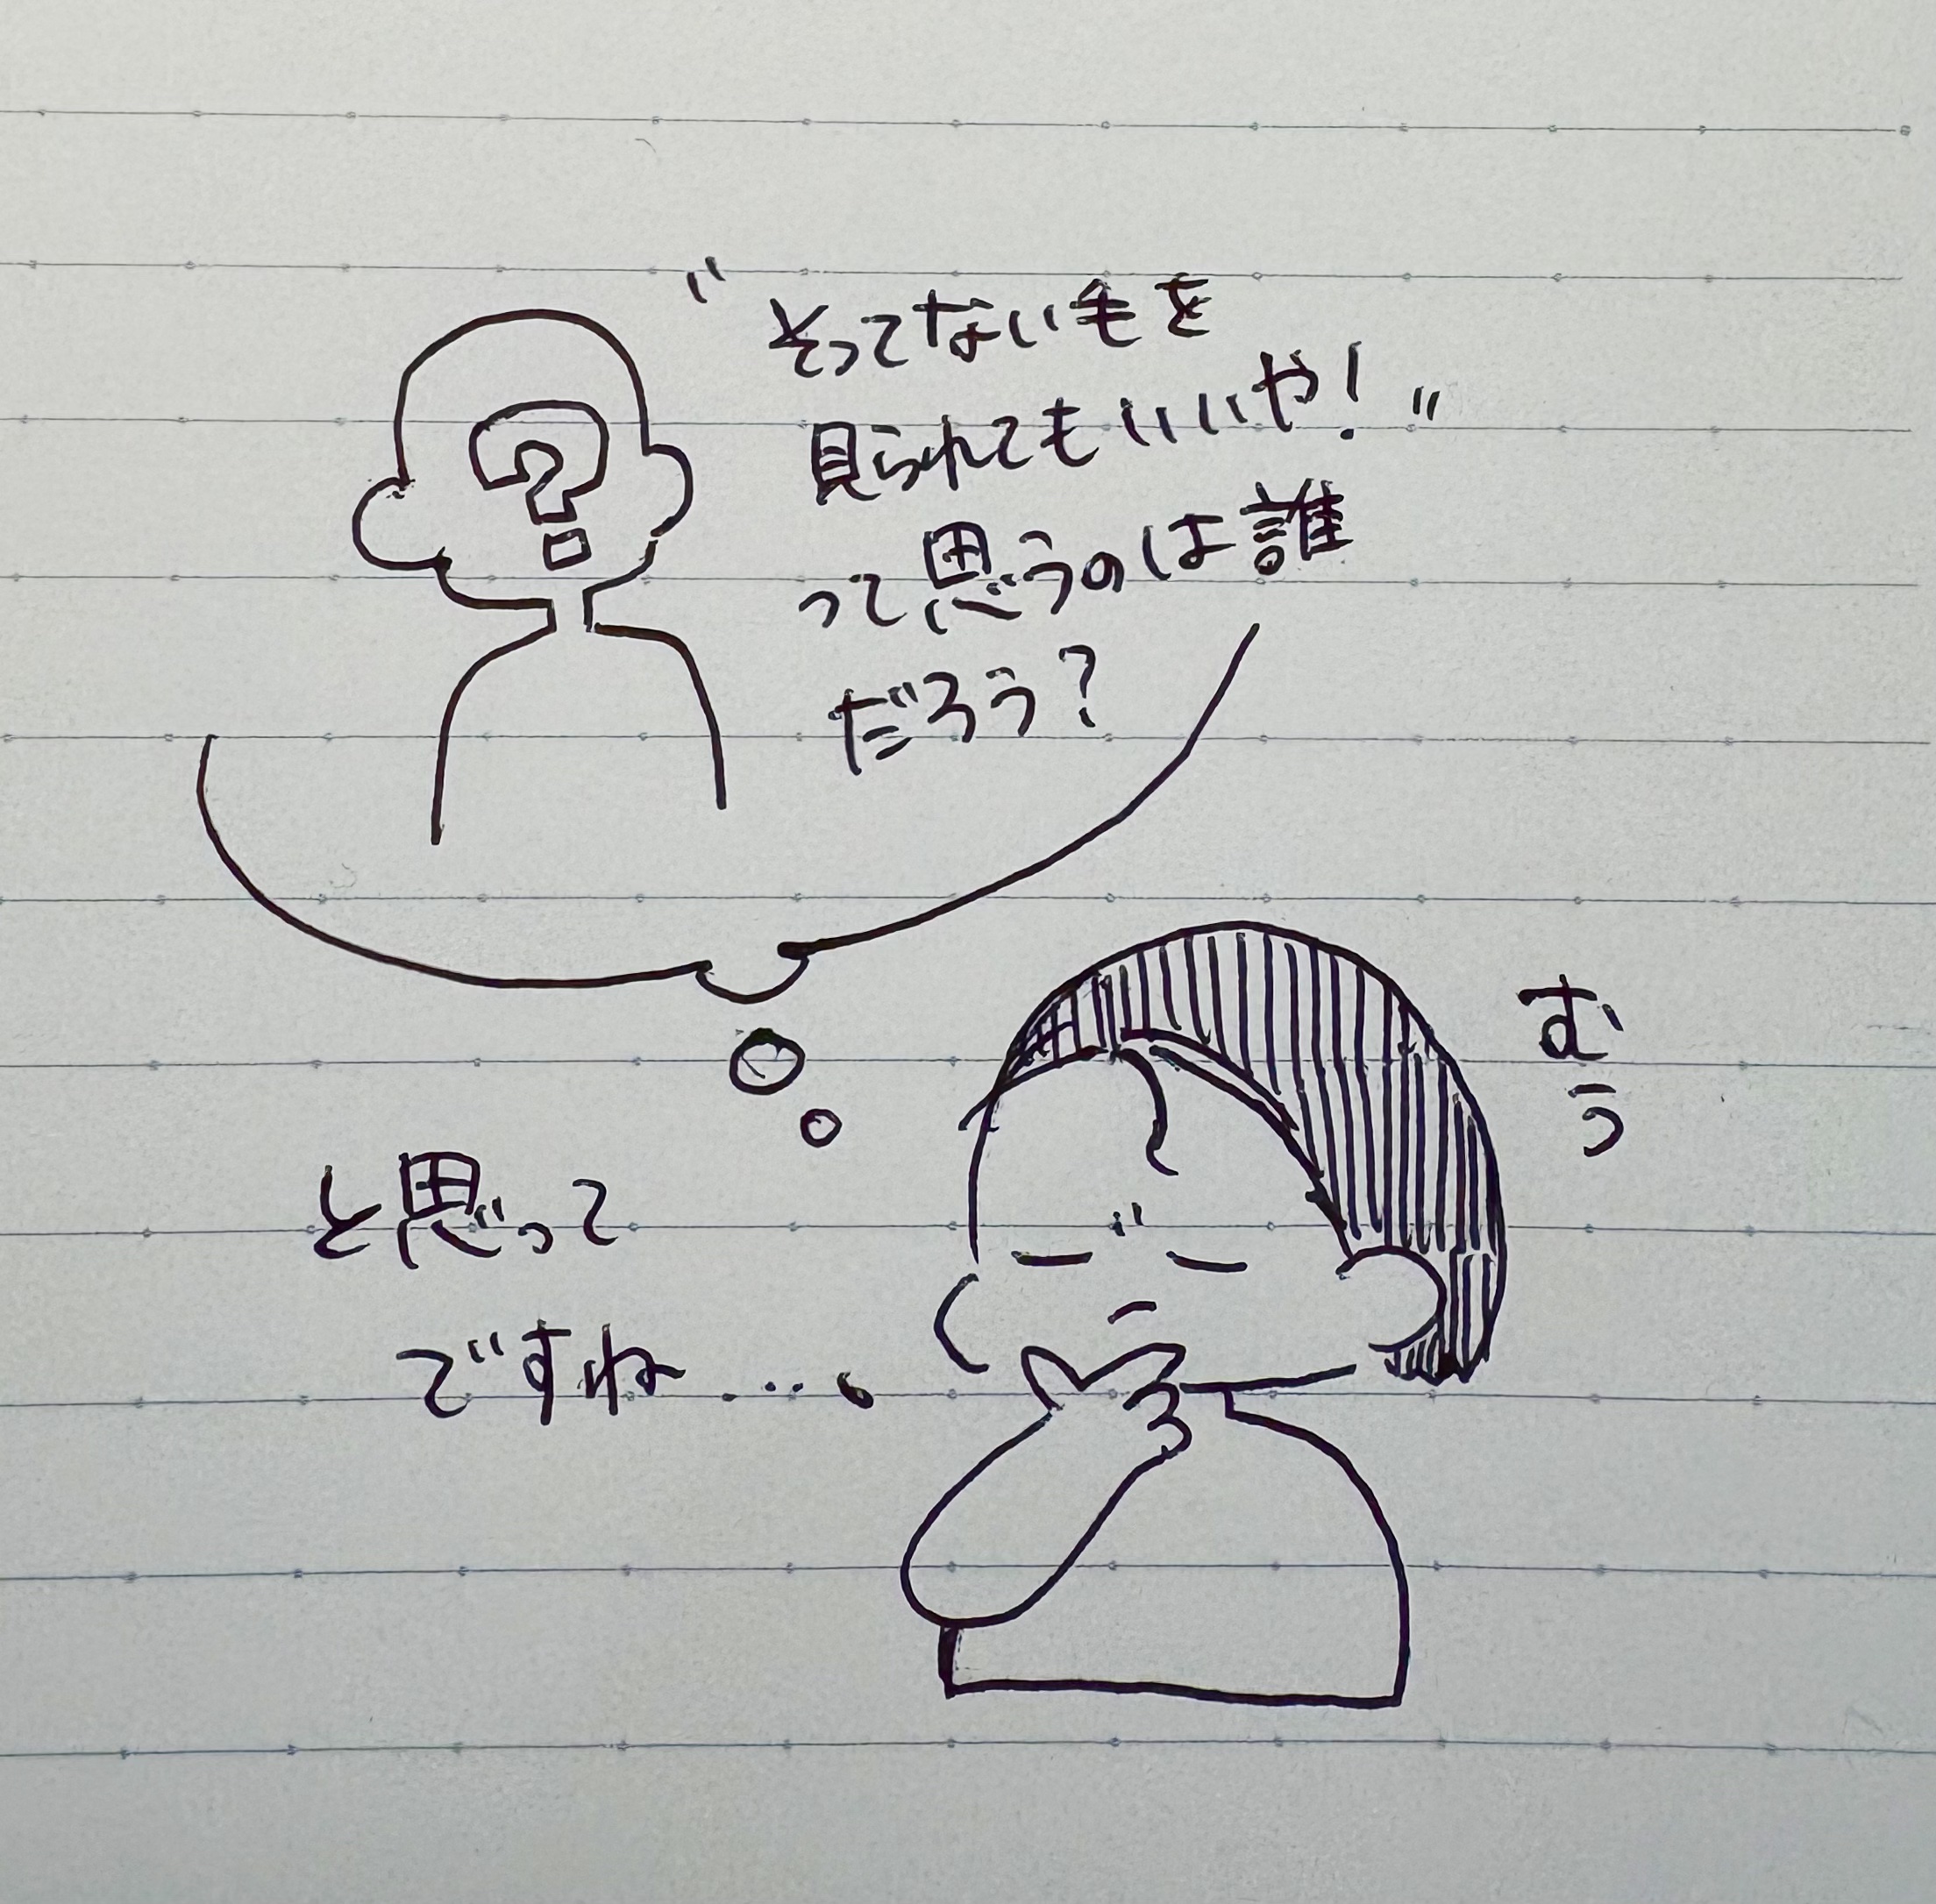 ?
"そってない毛を
見られてもいいや!"
って思うのは誰
だろう?
むぅ
と思って
ですね...。